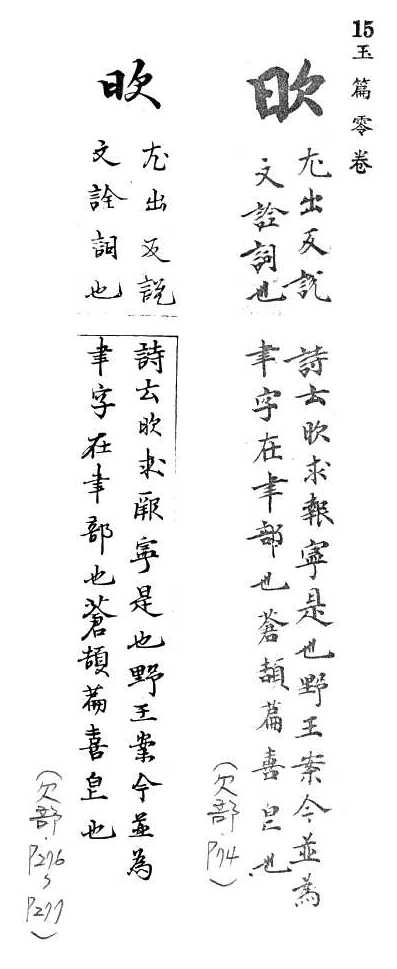 15玉篇零卷
欥
尤出反説詩云欥求報寧是也野王案今並為
文詮詞也聿字在聿部也蒼頡篇喜皀也
(欠部·P74)
欥
尤出反説詩云欥求厥寧是也野王案今並為
文詮詞也聿字在聿部也蒼頡篇喜皀也
(欠部·P276~P277)